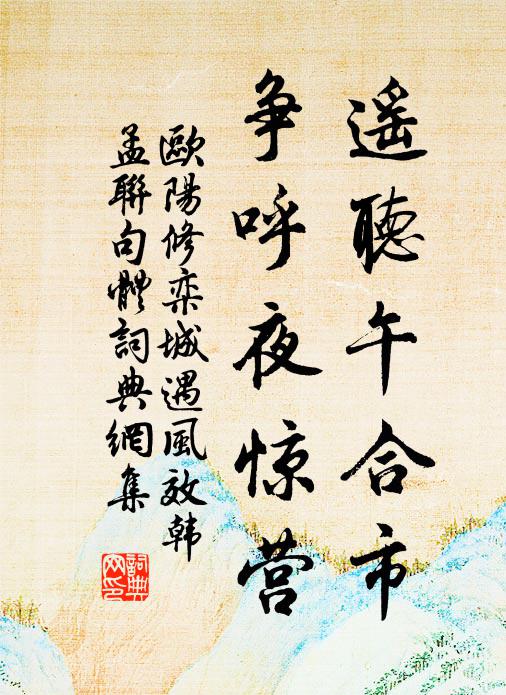 遥聽午合市
争呼夜惊营
歐陽修栾城遇風效韩
孟聯句體詞典網集
詞典网印